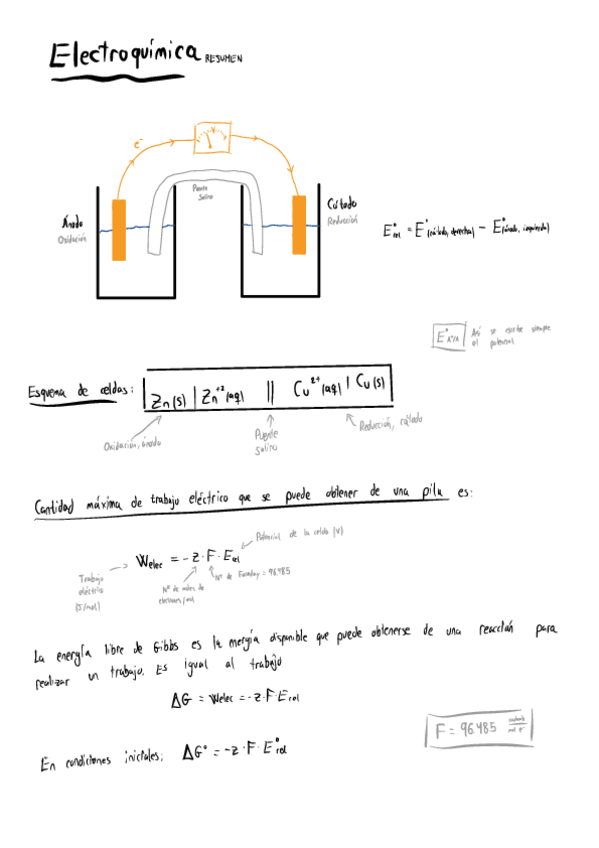 Electroquímica RESUMEN
e⁻
Puente
Salino
Ánodo
Oxidación
Cátodo
Reducción
E°cel = E°(cátodo, derecha) − E°(ánodo, izquierda)
Así se escribe siempre
el potencial
Esquema de celdas:
Zn(s) | Zn⁺²(aq) || Cu²⁺(aq) | Cu(s)
Oxidación, ánodo
Puente
Salino
Reducción, cátodo
Cantidad máxima de trabajo eléctrico que se puede obtener de una pila es:
Potencial de la celda (V)
Welec = −z·F·Ecel
Trabajo
eléctrico
(J/mol)
Nº de moles de
electrones/mol
Nº de Faraday = 96.485
La energía libre de Gibbs es la energía disponible que puede obtenerse de una reacción para
realizar un trabajo. Es igual al trabajo
ΔG = Welec = −z·F·Ecel
F = 96.485
En condiciones iniciales: ΔG° = −z·F·E°cel